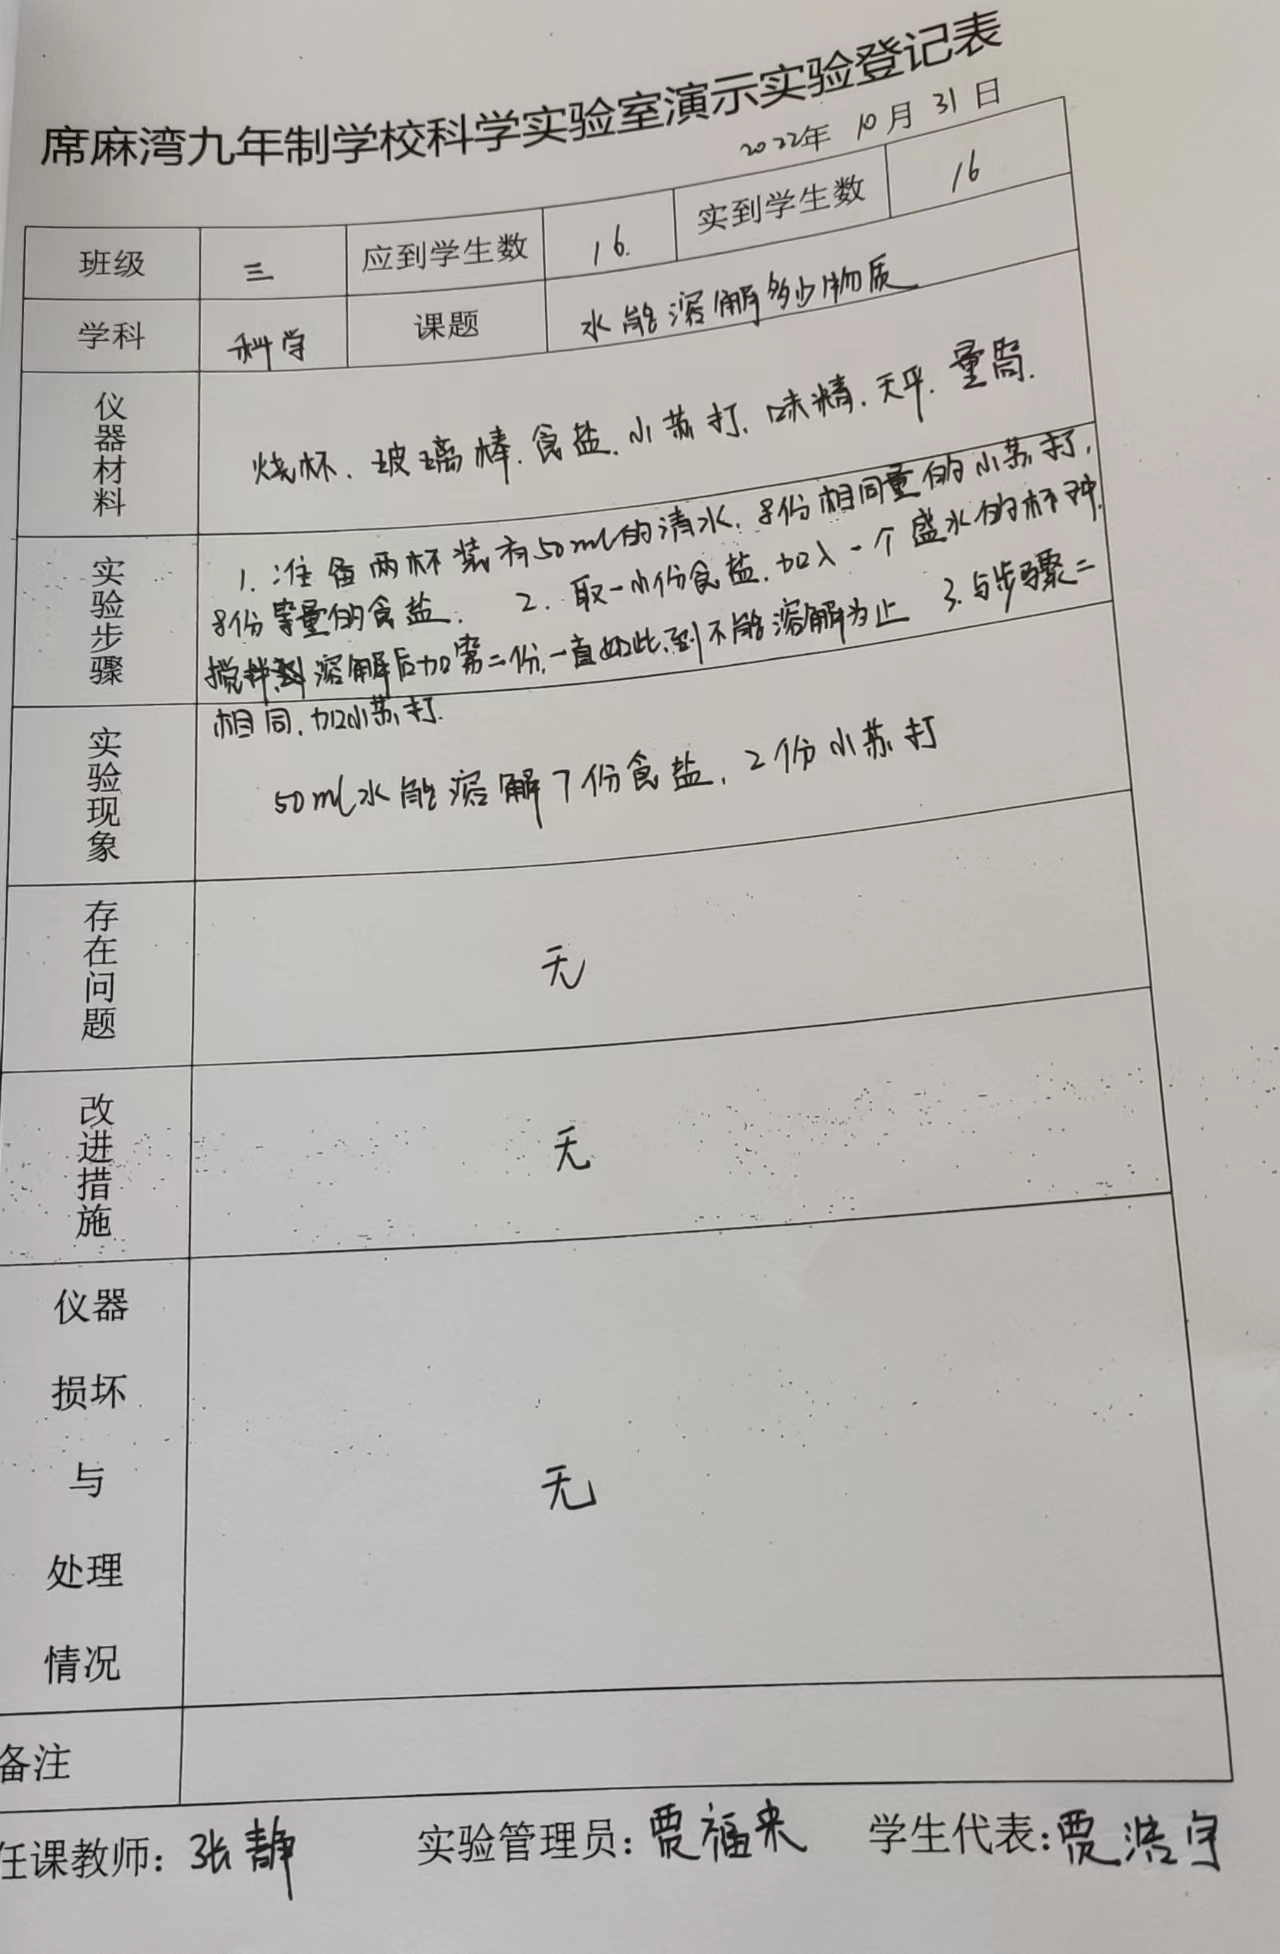 席麻湾九年制学校科学实验室演示实验登记表
2022年 10月 31日
班级 三 应到学生数 16. 实到学生数 16
学科 科学 课题 水能溶解多少物质
仪器材料 烧杯、玻璃棒.食盐.小苏打.味精.天平.量筒.
实验步骤
1.准备两杯装有50ml的清水.8份相同量的小苏打,
8份等量的食盐. 2.取一小份食盐.加入一个盛水的杯种.
搅拌到溶解后加第二份,一直如此,到不能溶解为止 3.与步骤二
相同.加小苏打.
实验现象 50ml水能溶解7份食盐.2份小苏打
存在问题 无
改进措施 无
仪器
损坏
与
处理
情况
无
备注
任课教师:张静 实验管理员:贾福来 学生代表:贾浩宇